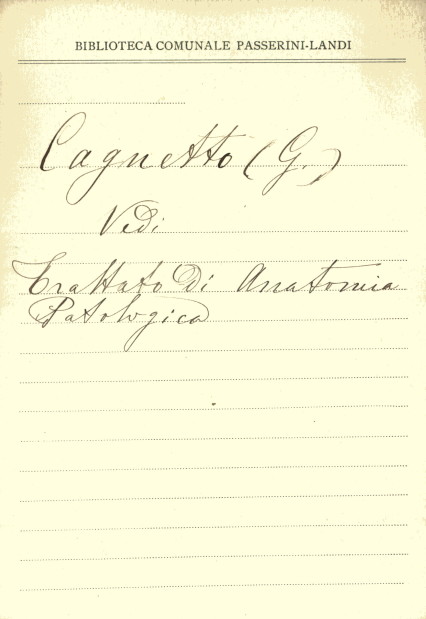 BIBLIOTECA COMUNALE PASSERINI-LANDI
Cagnetto (G.)
Vedi
Trattato Di Anatomia
Patologica